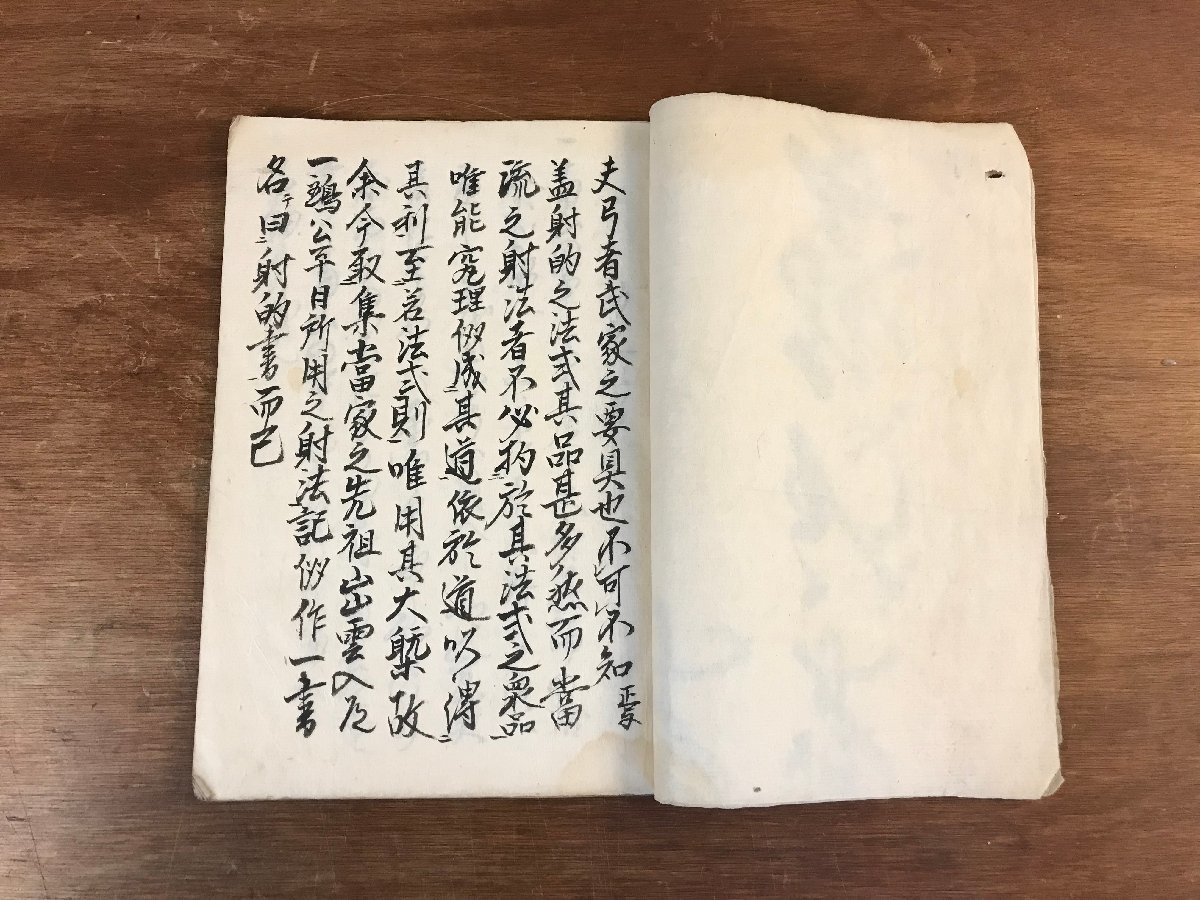 夫弓者武家之要具也不可不知焉
盖射的之法式其品甚多然而當
流之射法者不必拘於其法式之衆品
唯能究理以成其道依於道以得
其利至若法式則唯用其大槩故
余今取集當家之先祖出雲入道
一鷗公平日所用之射法記以作一書
名テ曰射的書而已